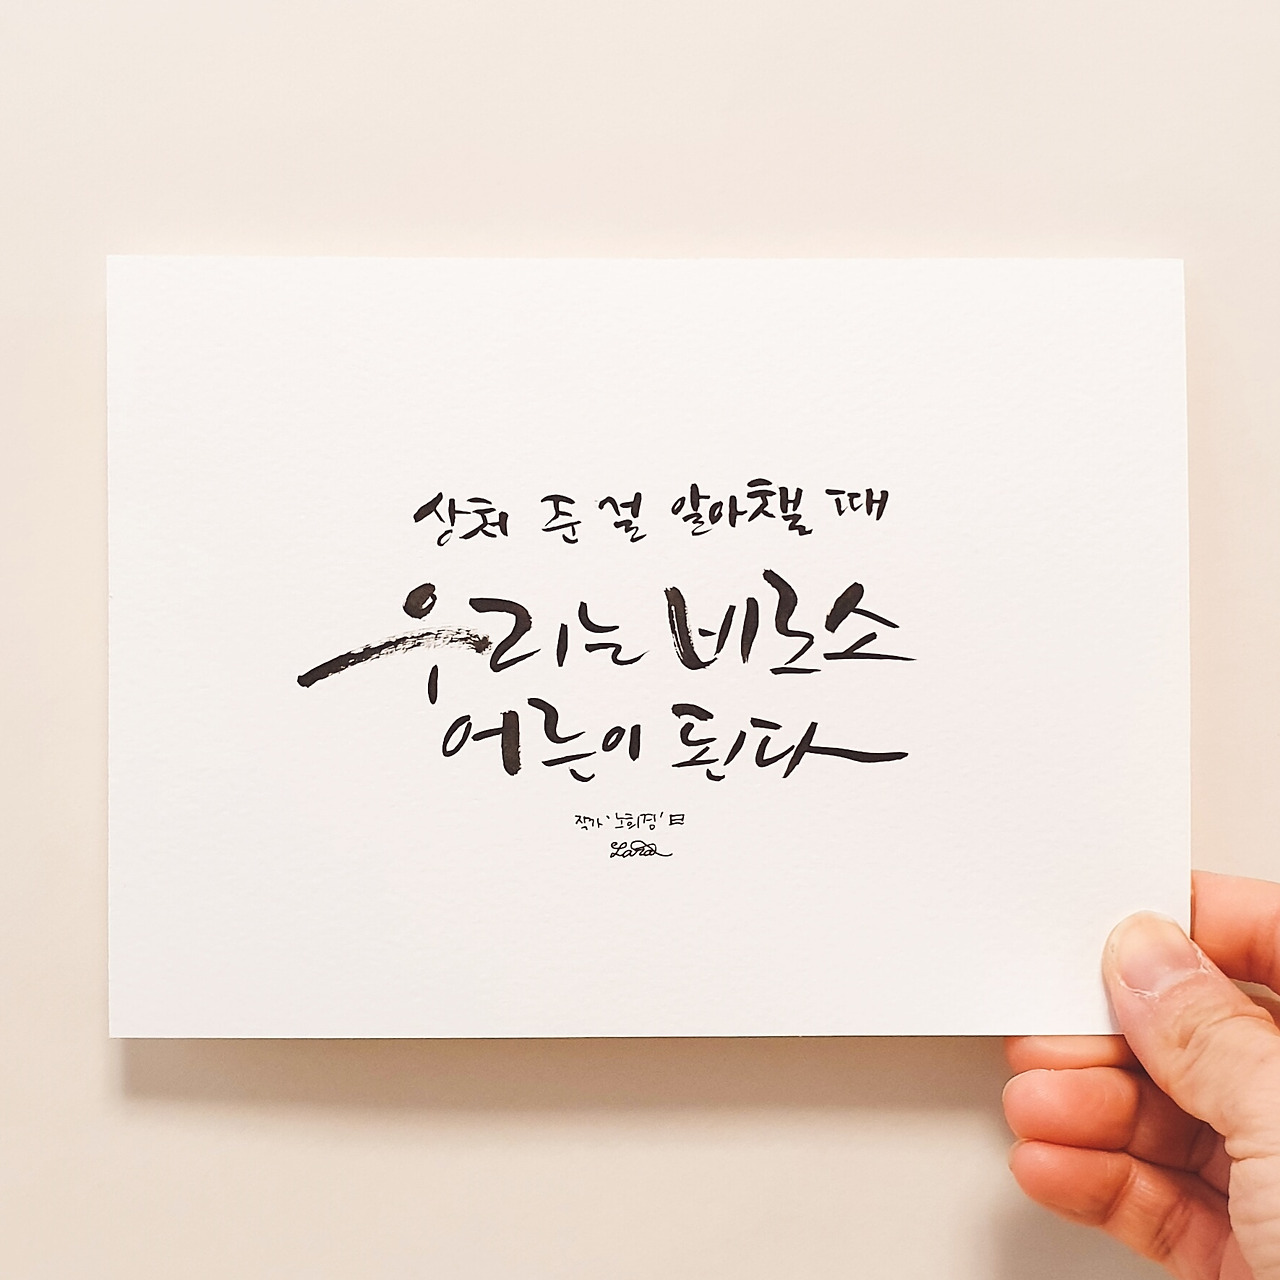 상처 준 걸 알아챌 때
우리는 비로소
어른이 된다
작가 '노희경'
Lara